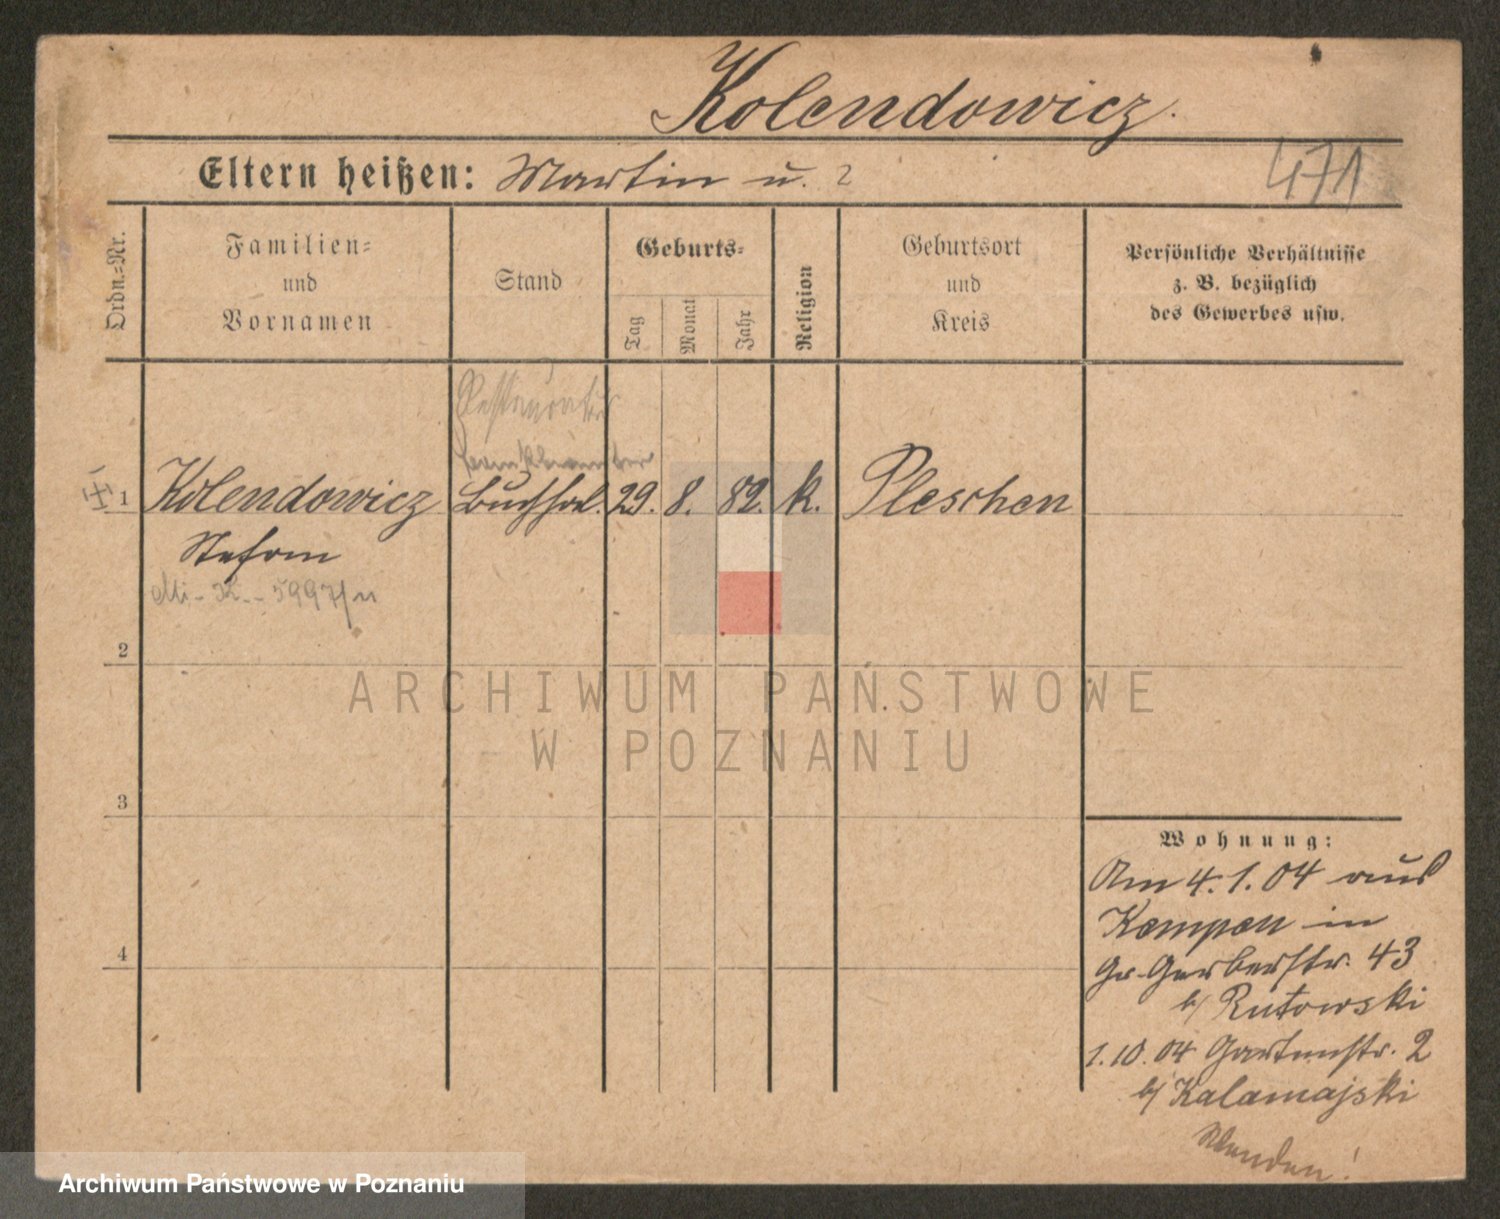 Kolendowicz.
Eltern heißen: Martin u. ?
471
Ordn.-Nr.
Familien-
und
Vornamen
Stand
Geburts-
Tag
Monat
Jahr
Religion
Geburtsort
und
Kreis
Persönliche Verhältnisse
z. B. bezüglich
des Gewerbes usw.
Restaurateur
1 Kolendowicz Buchhdl. 29. 8. 82. k. Pleschen
Stefan
5997/
2
3
4
Wohnung:
Am 4.1.04 aus
Kempen in
Gr. Gerberstr. 43
b/ Rutowski
1.10.04 Gartenstr. 2
b/ Kalamajski
Wenden!
ARCHIWUM PAŃSTWOWE
W POZNANIU
Archiwum Państwowe w Poznaniu